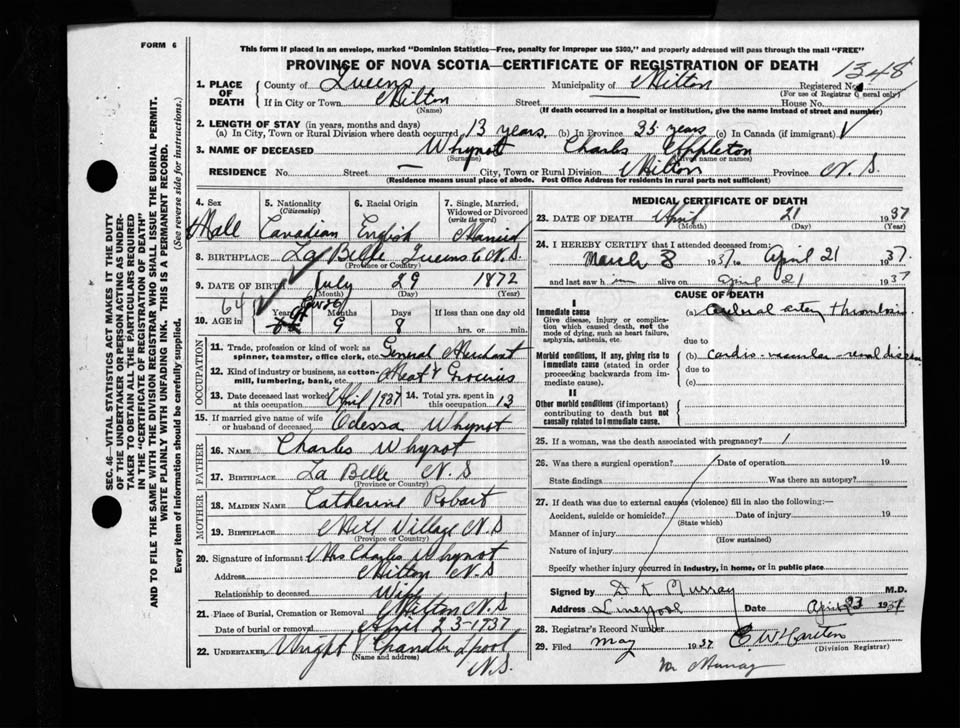 FORM 6
This form if placed in an envelope, marked "Dominion Statistics—Free, penalty for improper use $300," and properly addressed will pass through the mail "FREE"
PROVINCE OF NOVA SCOTIA—CERTIFICATE OF REGISTRATION OF DEATH
1348
1. PLACE OF DEATH
County of Queens Municipality of Milton Registered No.
(For use of Registrar General only)
If in City or Town Milton Street House No.
(Name) (If death occurred in a hospital or institution, give the name instead of street and number)
2. LENGTH OF STAY (in years, months and days)
(a) In City, Town or Rural Division where death occurred 13 years (b) In Province 35 years (c) In Canada (if immigrant)
3. NAME OF DECEASED Whynot Charles Appleton
(Surname) (Given name or names)
RESIDENCE No. — Street City, Town or Rural Division Milton Province N.S.
(Residence means usual place of abode. Post Office Address for residents in rural parts not sufficient)
4. Sex 5. Nationality 6. Racial Origin 7. Single, Married, Widowed or Divorced
(Citizenship) (write the word)
Male Canadian English Married
8. BIRTHPLACE La Belle Queens Co N.S.
(Province or Country)
9. DATE OF BIRTH July 29 1872
(Month) (Day) (Year)
10. AGE in 64 Years Months Days If less than one day old
9 8 hrs. or min.
OCCUPATION
11. Trade, profession or kind of work as spinner, teamster, office clerk, etc. General Merchant
12. Kind of industry or business, as cotton-mill, lumbering, bank, etc. Meat & Groceries
13. Date deceased last worked at this occupation April 1937 14. Total yrs. spent in 13
15. If married give name of wife or husband of deceased Odessa Whynot
FATHER
16. NAME Charles Whynot
17. BIRTHPLACE La Belle N.S
(Province or Country)
MOTHER
18. MAIDEN NAME Catherine Robart
19. BIRTHPLACE Mill Village N.S
(Province or Country)
20. Signature of informant Mrs Charles Whynot
Address Milton N.S
Relationship to deceased Wife
21. Place of Burial, Cremation or Removal Milton N.S
Date of burial or removal April 23-1937
22. UNDERTAKER Wright Chandler Lpool
(Name and address) N.S.
MEDICAL CERTIFICATE OF DEATH
23. DATE OF DEATH April 21 1937
(Month) (Day) (Year)
24. I HEREBY CERTIFY that I attended deceased from:
March 8 1937 to April 21 1937.
and last saw him alive on April 21 1937
CAUSE OF DEATH
I
Immediate cause
Give disease, injury or complication which caused death, not the mode of dying, such as heart failure, asphyxia, asthenia, etc.
(a) Cerebral artery Thrombosis
due to
Morbid conditions, if any, giving rise to immediate cause (stated in order proceeding backwards from immediate cause).
(b) Cardio-vascular-renal disease
due to
(c)
II
Other morbid conditions (if important) contributing to death but not causally related to immediate cause.
25. If a woman, was the death associated with pregnancy?
26. Was there a surgical operation? Date of operation 19
State findings Was there an autopsy?
27. If death was due to external causes (violence) fill in also the following:—
Accident, suicide or homicide? Date of injury 19
(State which)
Manner of injury
(How sustained)
Nature of injury
Specify whether injury occurred in Industry, in home, or in public place
Signed by D K Murray M.D.
Address Liverpool Date April 23 1937
28. Registrar's Record Number
29. Filed May 1937
(Division Registrar)
Murray
SEC. 46—VITAL STATISTICS ACT MAKES IT THE DUTY
OF THE UNDERTAKER OR PERSON ACTING AS UNDER-
TAKER TO OBTAIN ALL THE PARTICULARS REQUIRED
IN THE "CERTIFICATE OF REGISTRATION OF DEATH"
AND TO FILE THE SAME WITH THE DIVISION REGISTRAR WHO SHALL ISSUE THE BURIAL PERMIT.
WRITE PLAINLY WITH UNFADING INK. THIS IS A PERMANENT RECORD.
Every item of information should be carefully supplied. (See reverse side for instructions.)